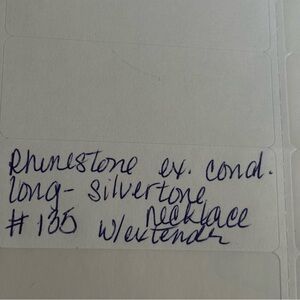 Rhinestone ex. cond.
long- silvertone
necklace
#135 w/extender